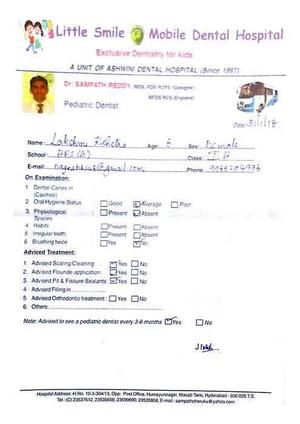 Little Smile Mobile Dental Hospital
Exclusive Dentistry for kids
A UNIT OF ASHWINI DENTAL HOSPITAL (Since 1997)
Dr. SAMPATH REDDY, MDS, FDS RCPS (Glasgow)
MFDS RCS (England)
Pediatric Dentist
Date:
Name: Lakshmi Age: 6 Sex: Female
School: HPS(B) Class: I H
E-mail: Phone:
On Examination:
1 Dental Caries in (Cavities)
2 Oral Hygiene Status Good Average Poor
3. Physiological Spaces Present Absent
4 Habits Present Absent
5 Irregular teeth Present Absent
6 Brushing twice Yes No
Adviced Treatment:
1. Advised Scaling/Cleaning Yes No
2. Advised Flouride application Yes No
3. Advised Pit & Fissure Sealants Yes No
4 Advised Filling in
5. Advised Orthodontic treatment Yes No
6. Others:
Note: Advised to see a pediatric dentist every 3-6 months Yes No
Hospital Address: H.No. 10-3-304/13, Opp: Post Office, Humayunnagar, Masab Tank, Hyderabad - 500 028.T.S.